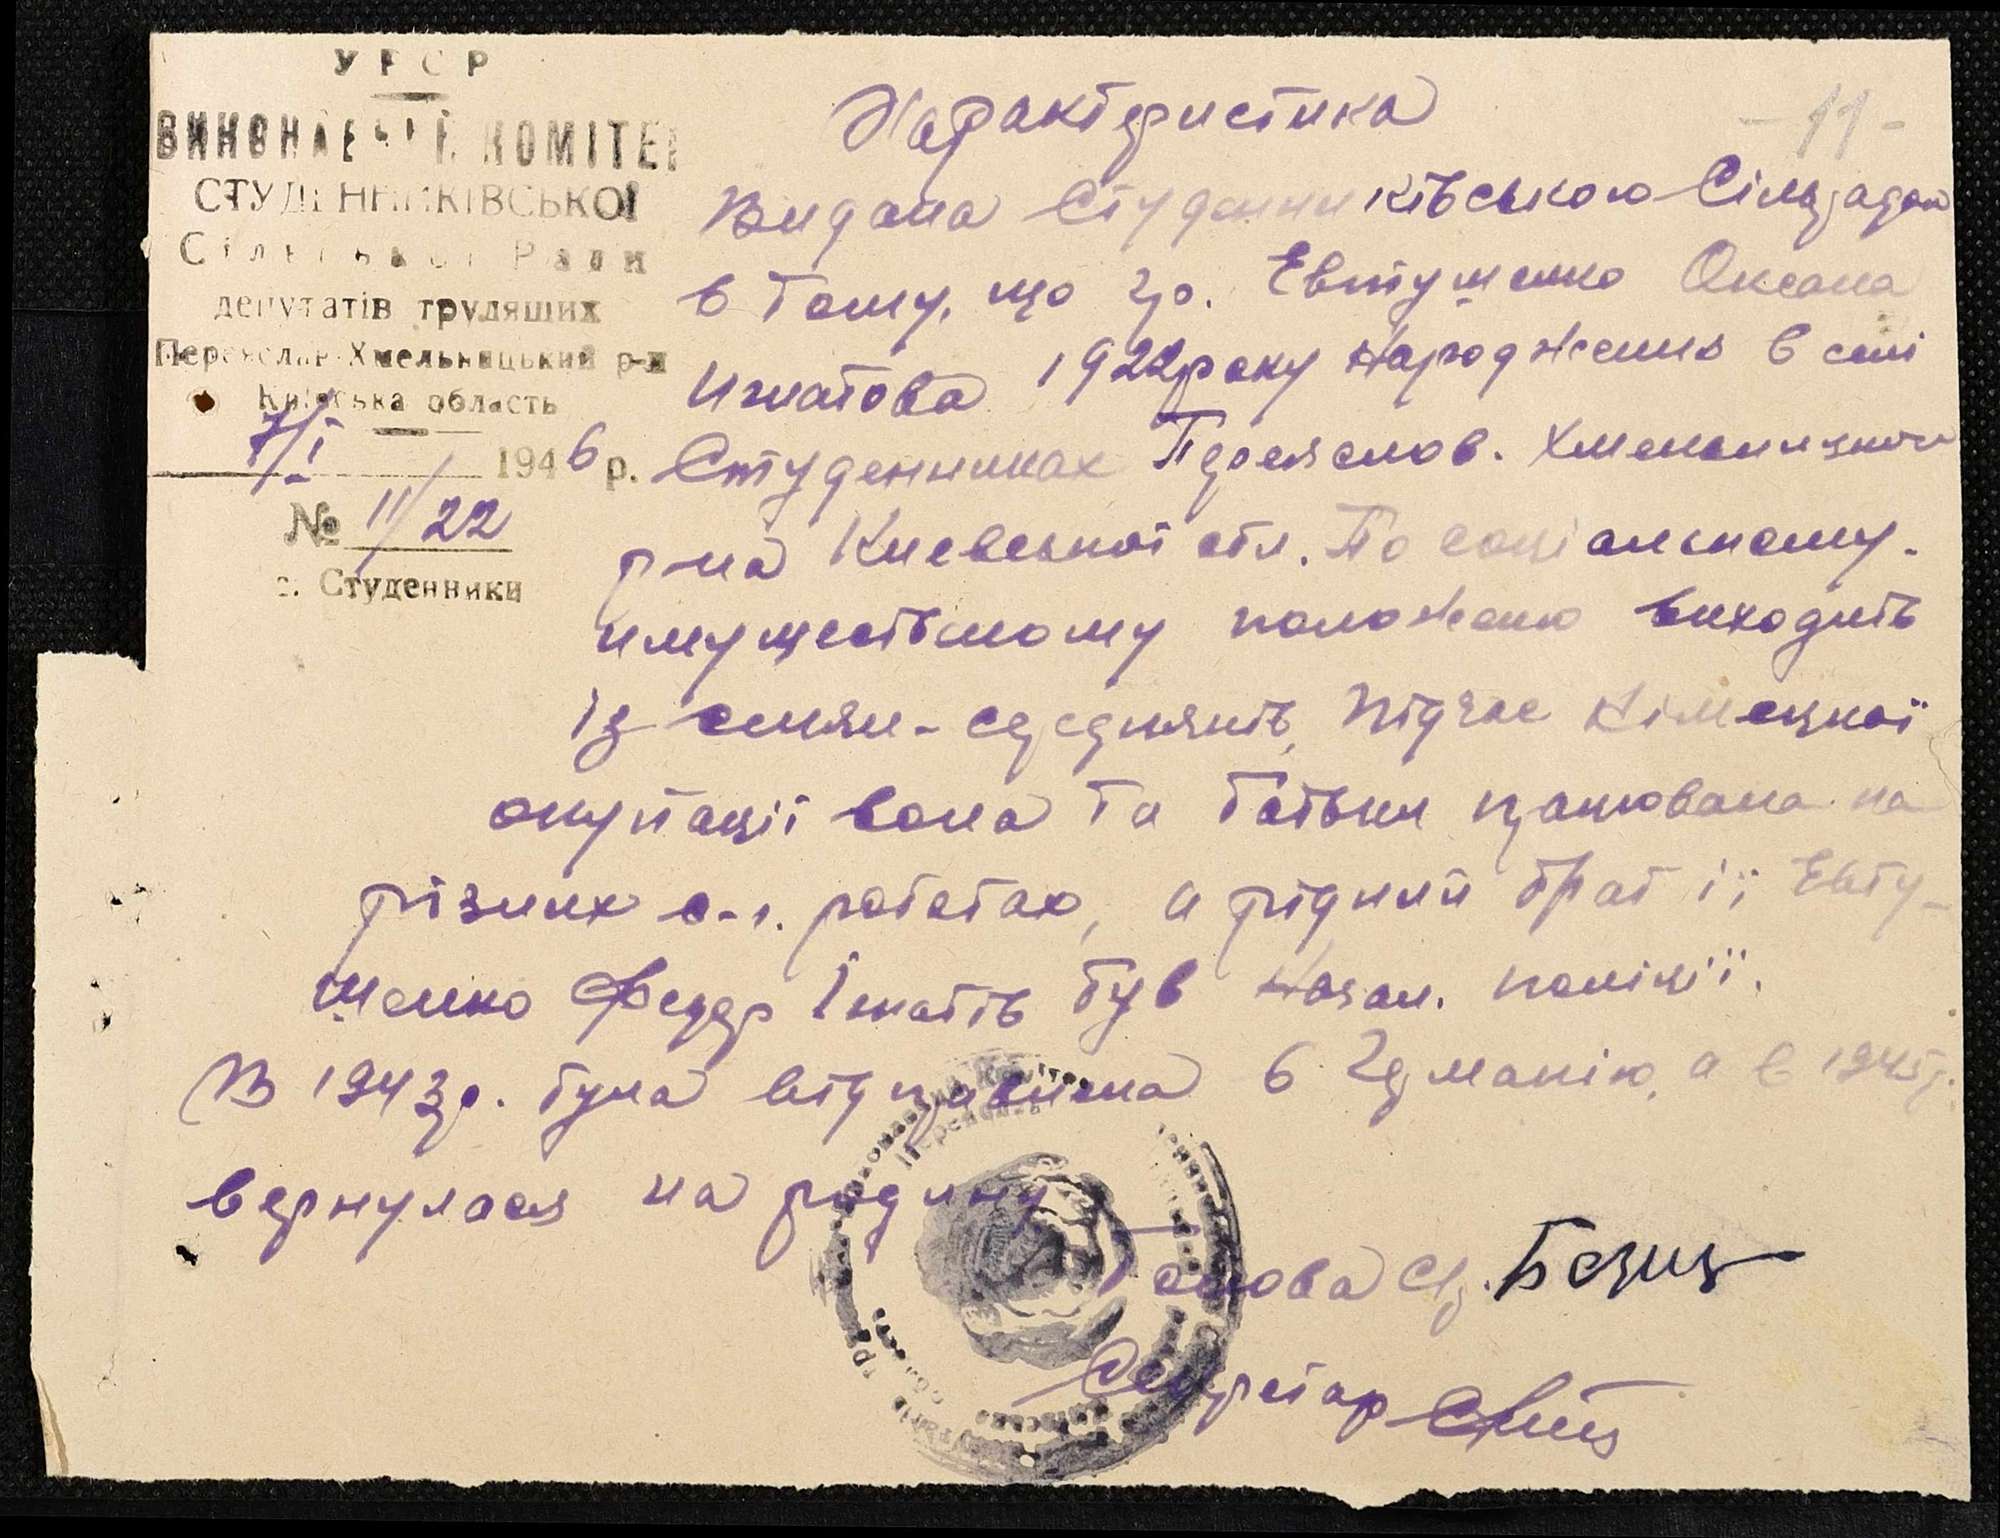 УРСР
ВИКОНАВЧИЙ КОМІТЕТ
СТУДЕННИКІВСЬКОЇ
Сільської Ради
депутатів трудящих
Переяслав-Хмельницький р-н
Київська область
7/I 1946 р.
№ 11/22
с. Студенники
-11-
Характеристика
Видана Студенниківською Сільрадою
в тому, що гр. Евтушенко Оксана
Игнатова 1922 року народження в селі
Студенниках Переяслов. Хмельницького
р-на Киевської обл. По соціальному.
имущественому положеню виходить
із семян-середняків, підчас німецкої
окупації вона та батьки працювала на
різних с-г. роботах, а рідний брат її Евту-
шенко Федор Ігнатів був начал. поліції.
В 1943 р. була відправлена в Германію, а в 1945 р.
вернулася на родину
Голова с/р.
Секретар